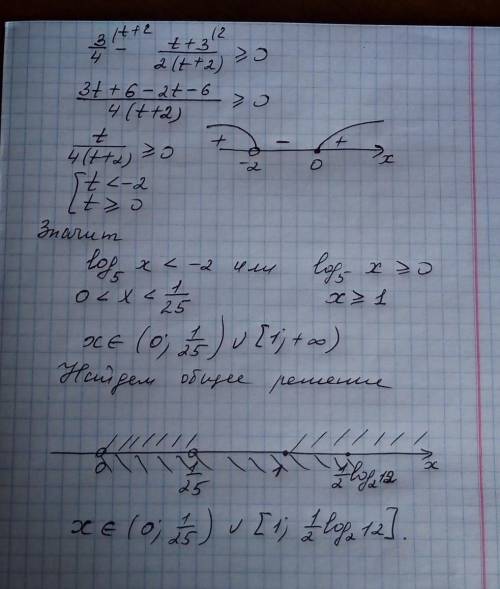 3/4 (t+2 - t+3 (2 / 2(t+2) ≥ 0
3t+6-2t-6 / 4(t+2) ≥ 0
t / 4(t+2) ≥ 0
+ - +
-2 0 x
[ t < -2
t ≥ 0
Значит
log₅ x < -2 или log₅ x ≥ 0
0 < x < 1/25 x ≥ 1
x ∈ (0; 1/25) ∪ [1; +∞)
Найдем общее решение
0 1/25 1 1/2 log₂12 x
x ∈ (0; 1/25) ∪ [1; 1/2 log₂ 12].